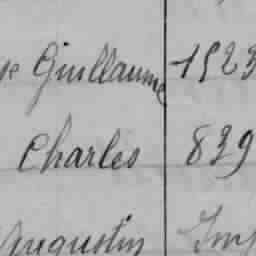 Guillaume 1523
Charles 839
Augustin